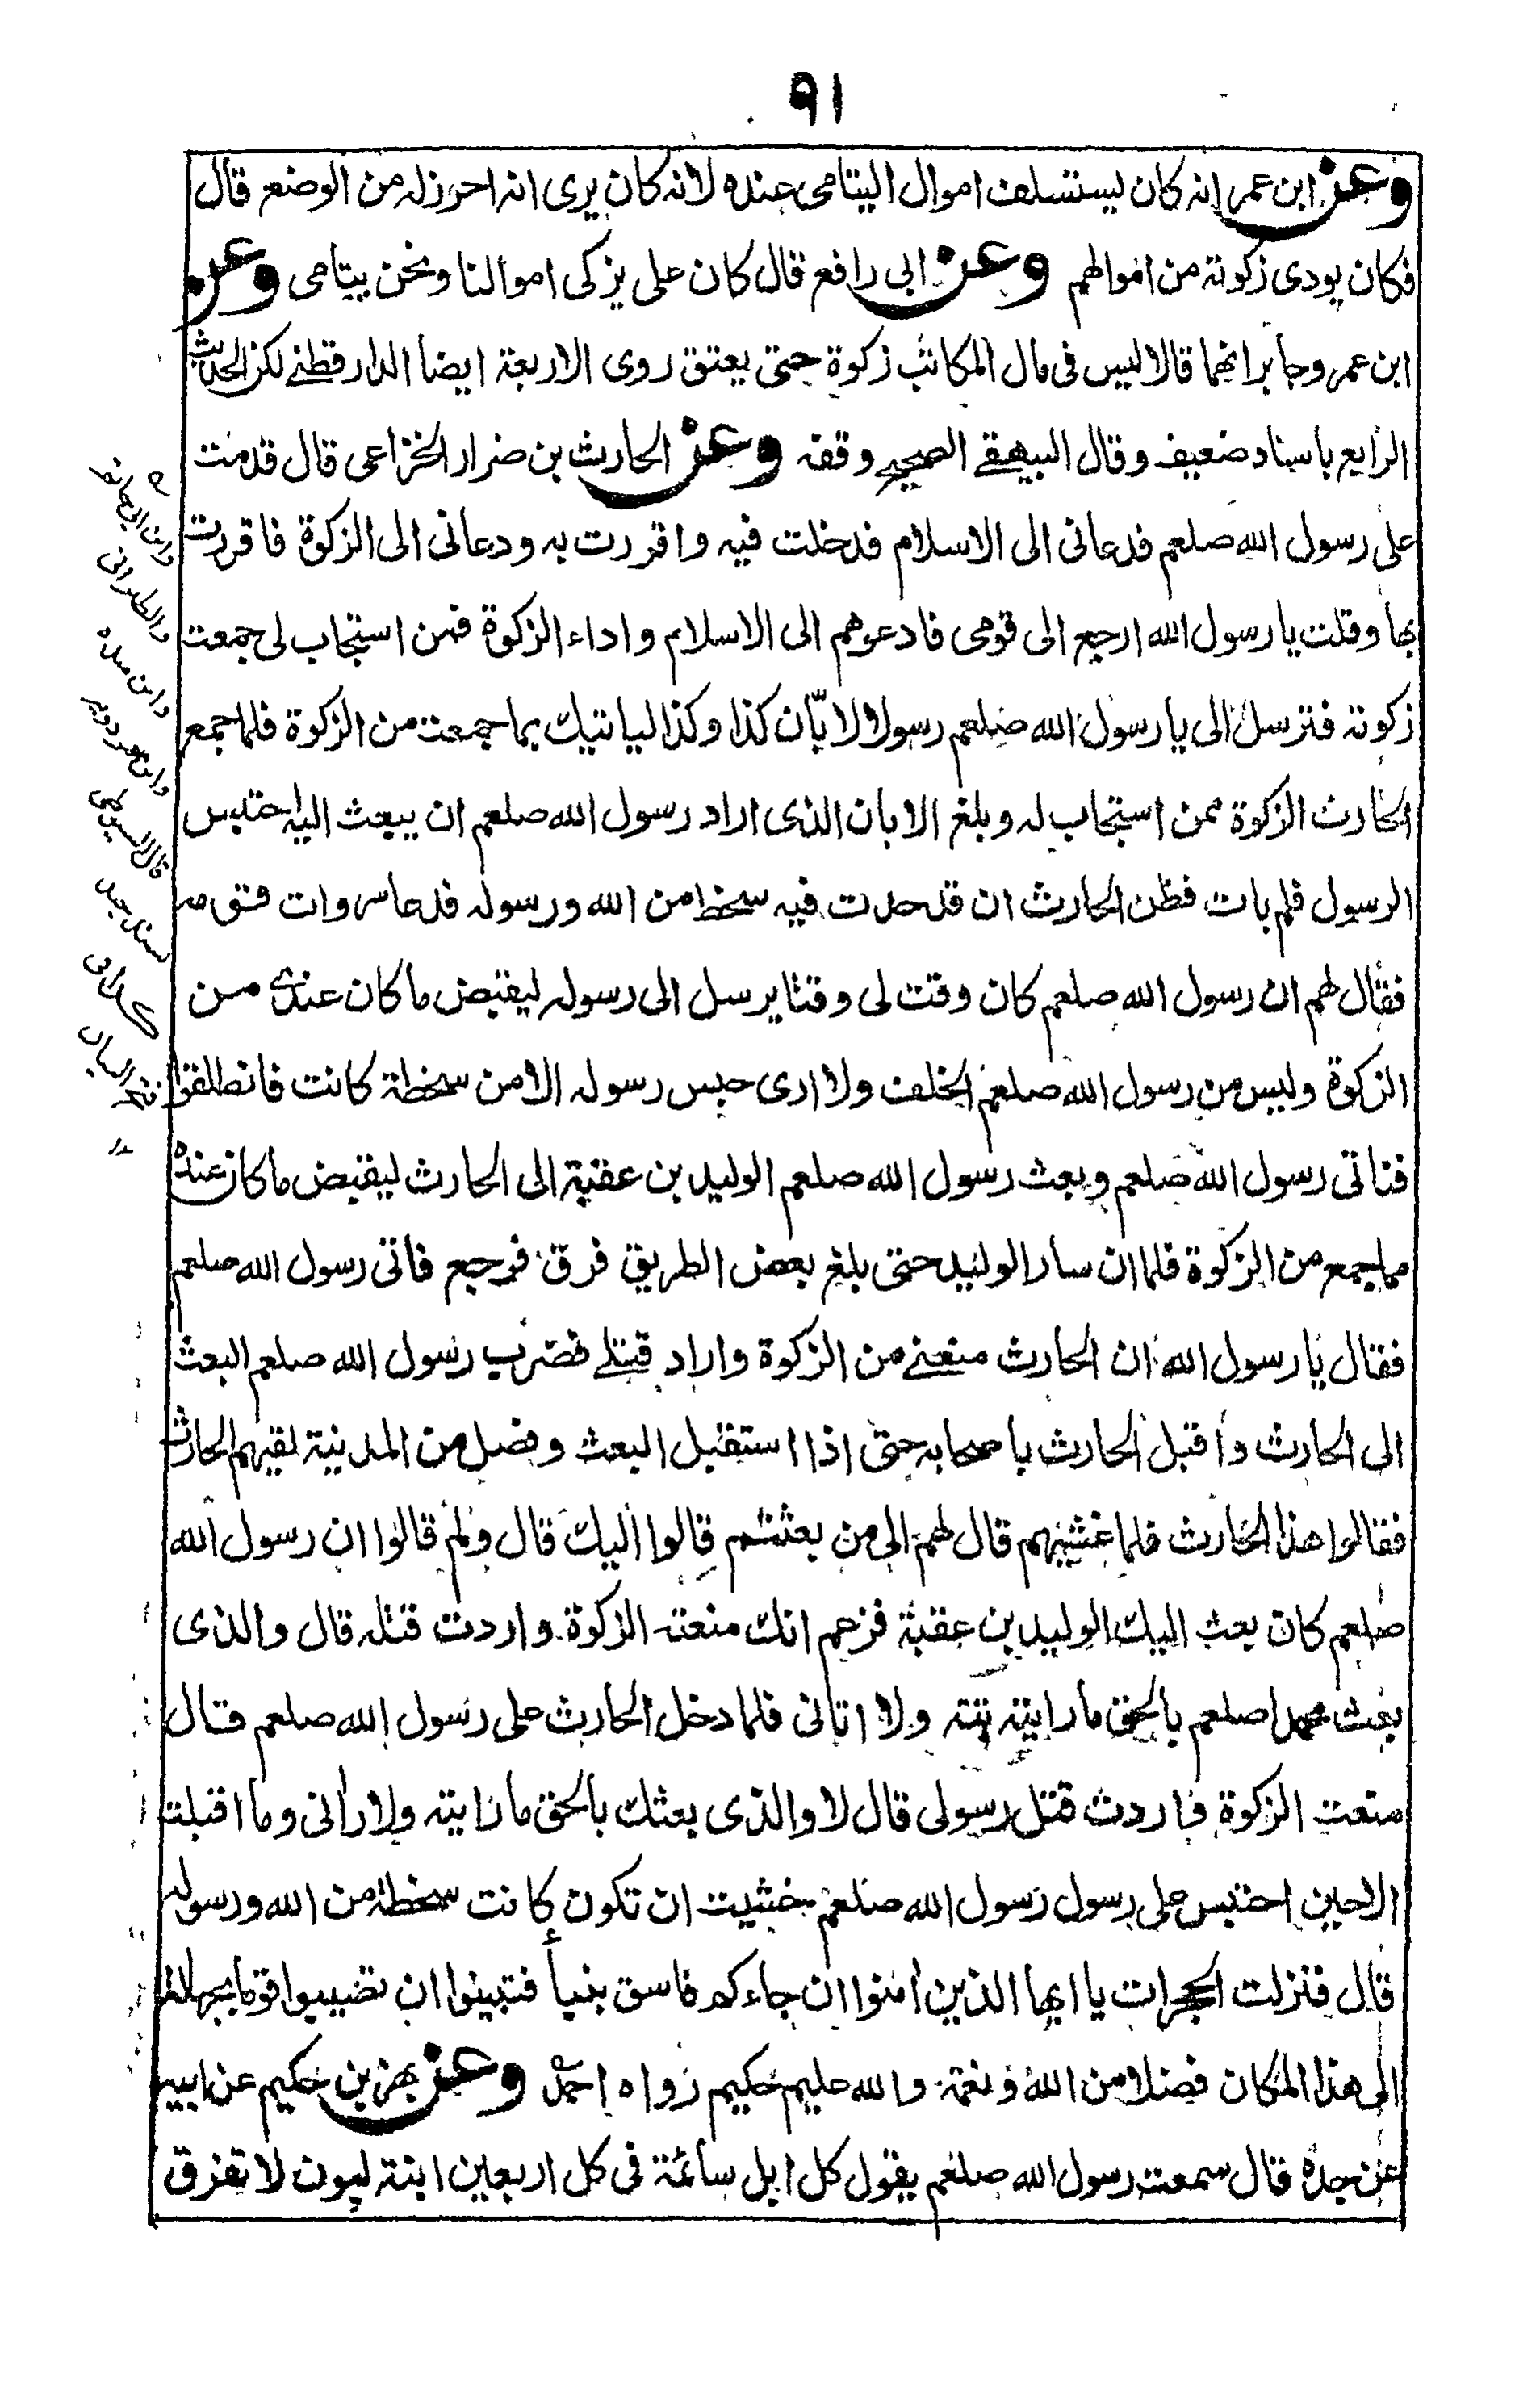 ٩١
وعن ابن عمر انه كان ليستسلف اموال اليتامى عنده لانه كان يرى انه احرز له من الوضع قال
فكان يودى زكوته من اموالهم وعن ابى رافع قال كان على يزكى اموالنا ونحن يتامى وعن
ابن عمر وجابر انهما قالا ليس فى مال المكاتب زكوة حتى يعتق روى الاربعة ايضا الدارقطنے لكن الحديث
الرابع باسناد ضعيف وقال البيهقے الصحيح وقفه وعن الحارث بن ضرار الخزاعى قال قدمت
على رسول الله صلعم فدعانى الى الاسلام فدخلت فيه واقررت به ودعانى الى الزكوة فاقررت
بها وقلت يا رسول الله ارجع الى قومى فادعوهم الى الاسلام واداء الزكوة فمن استجاب لى جمعت
زكوته فترسل الى يا رسول الله صلعم رسولا لابّان كذا وكذا لياتيك بما جمعت من الزكوة فلما جمع
الحارث الزكوة ممن استجاب له وبلغ الابان الذى اراد رسول الله صلعم ان يبعث اليه احتبس
الرسول فلم يات فظن الحارث ان قد حدث فيه سخط من الله ورسوله فدعا سروات قومه
فقال لهم ان رسول الله صلعم كان وقت لى وقتا يرسل الى رسوله ليقبض ما كان عندى من
الزكوة وليس من رسول الله صلعم الخلف ولا ارى حبس رسوله الا من سخطة كانت فانطلقوا
فناتى رسول الله صلعم وبعث رسول الله صلعم الوليد بن عقبة الى الحارث ليقبض ما كان عنده
مما جمع من الزكوة فلما ان سار الوليد حتى بلغ بعض الطريق فرق فرجع فاتى رسول الله صلعم
فقال يا رسول الله ان الحارث منعنے من الزكوة واراد قتلے فضرب رسول الله صلعم البعث
الى الحارث واقبل الحارث باصحابه حتى اذا استقبل البعث وفصل من المدينة لقيهم الحارث
فقالوا هذا الحارث فلما غشيهم قال لهم الى من بعثتم قالوا اليك قال ولم قالوا ان رسول الله
صلعم كان بعث اليك الوليد بن عقبة فزعم انك منعته الزكوة واردت قتله قال والذى
بعث محمدا صلعم بالحق ما رايته بتة ولا اتانى فلما دخل الحارث على رسول الله صلعم قال
منعت الزكوة واردت قتل رسولى قال لا والذى بعثك بالحق ما رايته ولا رآنى وما اقبلت
الا حين احتبس على رسول رسول الله صلعم خشيت ان تكون كانت سخطة من الله ورسوله
قال فنزلت الحجرات يا ايها الذين امنوا ان جاءكم فاسق بنبأ فتبينوا ان تصيبوا قوما بجهالة
الى هذا المكان فضلا من الله ونعمة والله عليم حكيم رواه احمد وعن بهز بن حكيم عن ابيه
عن جده قال سمعت رسول الله صلعم يقول كل ابل سائمة فى كل اربعين ابنة لبون لا تفرق
وابن ابى حاتم
والطبرانى
وابن منده
وابن مردويه
قال السيوطى
بسند جيد
كذا فى
فتح البيان
١٢